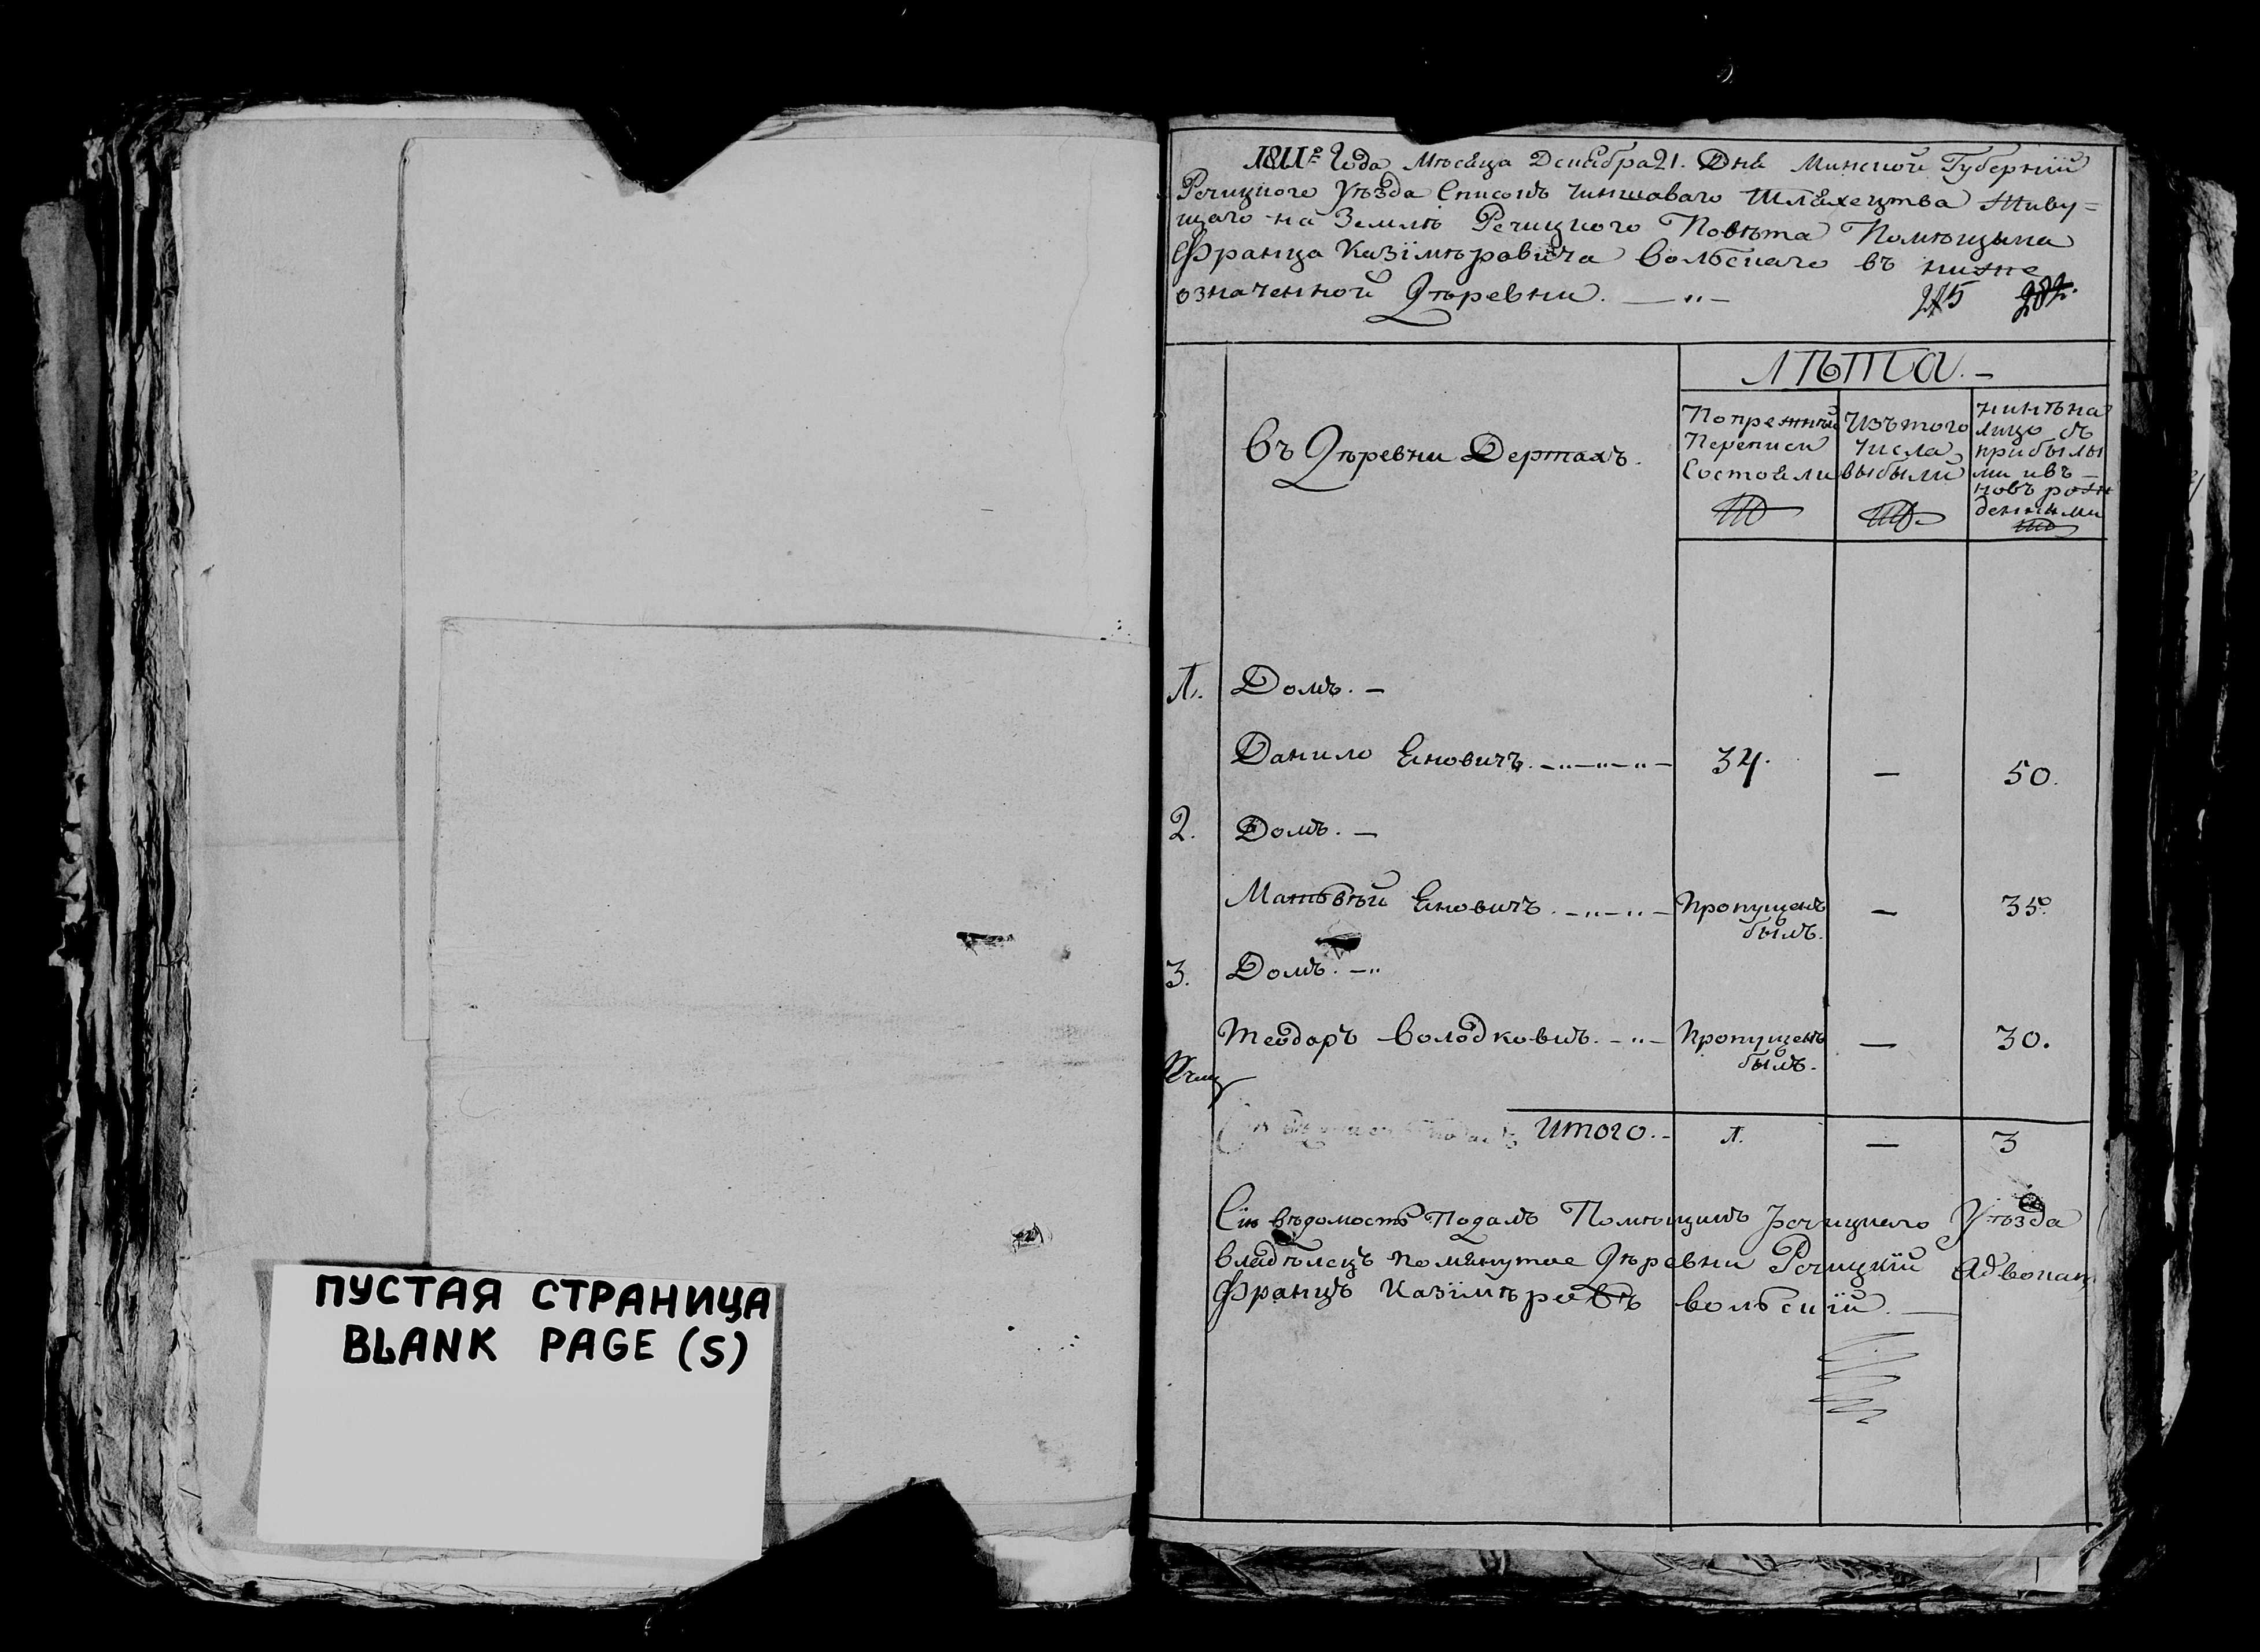 ПУСТАЯ СТРАНИЦА
BLANK PAGE (S)
1811го Года Мѣсяца Декабря 21. Дня Минской Губернїи
Речицкого Уѣзда Списокъ чиншаваго Шляхецтва живу=
щаго на Землѣ Речицкого Повѣта Помѣщыка
Франца Казїмѣравича Вольскаго въ ниже
означенной Дѣревни.
215 282.
ЛѢТА.
Въ Дѣревни Дертахъ.
Попрежней
Переписи
Состояли
Изътого
числа
выбыли
нинѣ на
лицо съ
прибылы
ми ивъ
новъ рож
денными
1. Домъ.
Данило Яновичъ. 34. — 50.
2. Домъ.
Матьвѣй Яновичъ. Пропущенъ былъ. — 35.
3. Домъ.
Теодаръ Володковичъ. Пропущенъ былъ. — 30.
Итого. 1. — 3
Сїю вѣдомость Подалъ Помѣщикъ Речицкаго Уѣзда
владѣлецъ помянутое Дѣревни Речицкїй Адвокат
Францъ Казїмѣровъ Вольскїй.